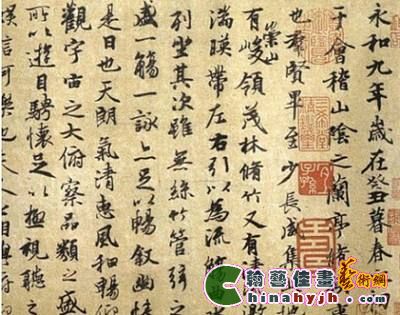 永和九年歲在癸丑暮春
于會稽山陰之蘭亭脩
也羣賢畢至少長咸集
有崇山峻領茂林脩竹又有清
湍暎帶左右引以為流觴
列坐其次雖無絲竹管弦之
盛一觴一詠亦足以暢敘幽情
是日也天朗氣清惠風和暢仰
觀宇宙之大俯察品類之盛
所以遊目騁懷足以極視聽之
娛信可樂也夫人之相與俯
翰藝佳畫 藝術網
Chinahyjh.com